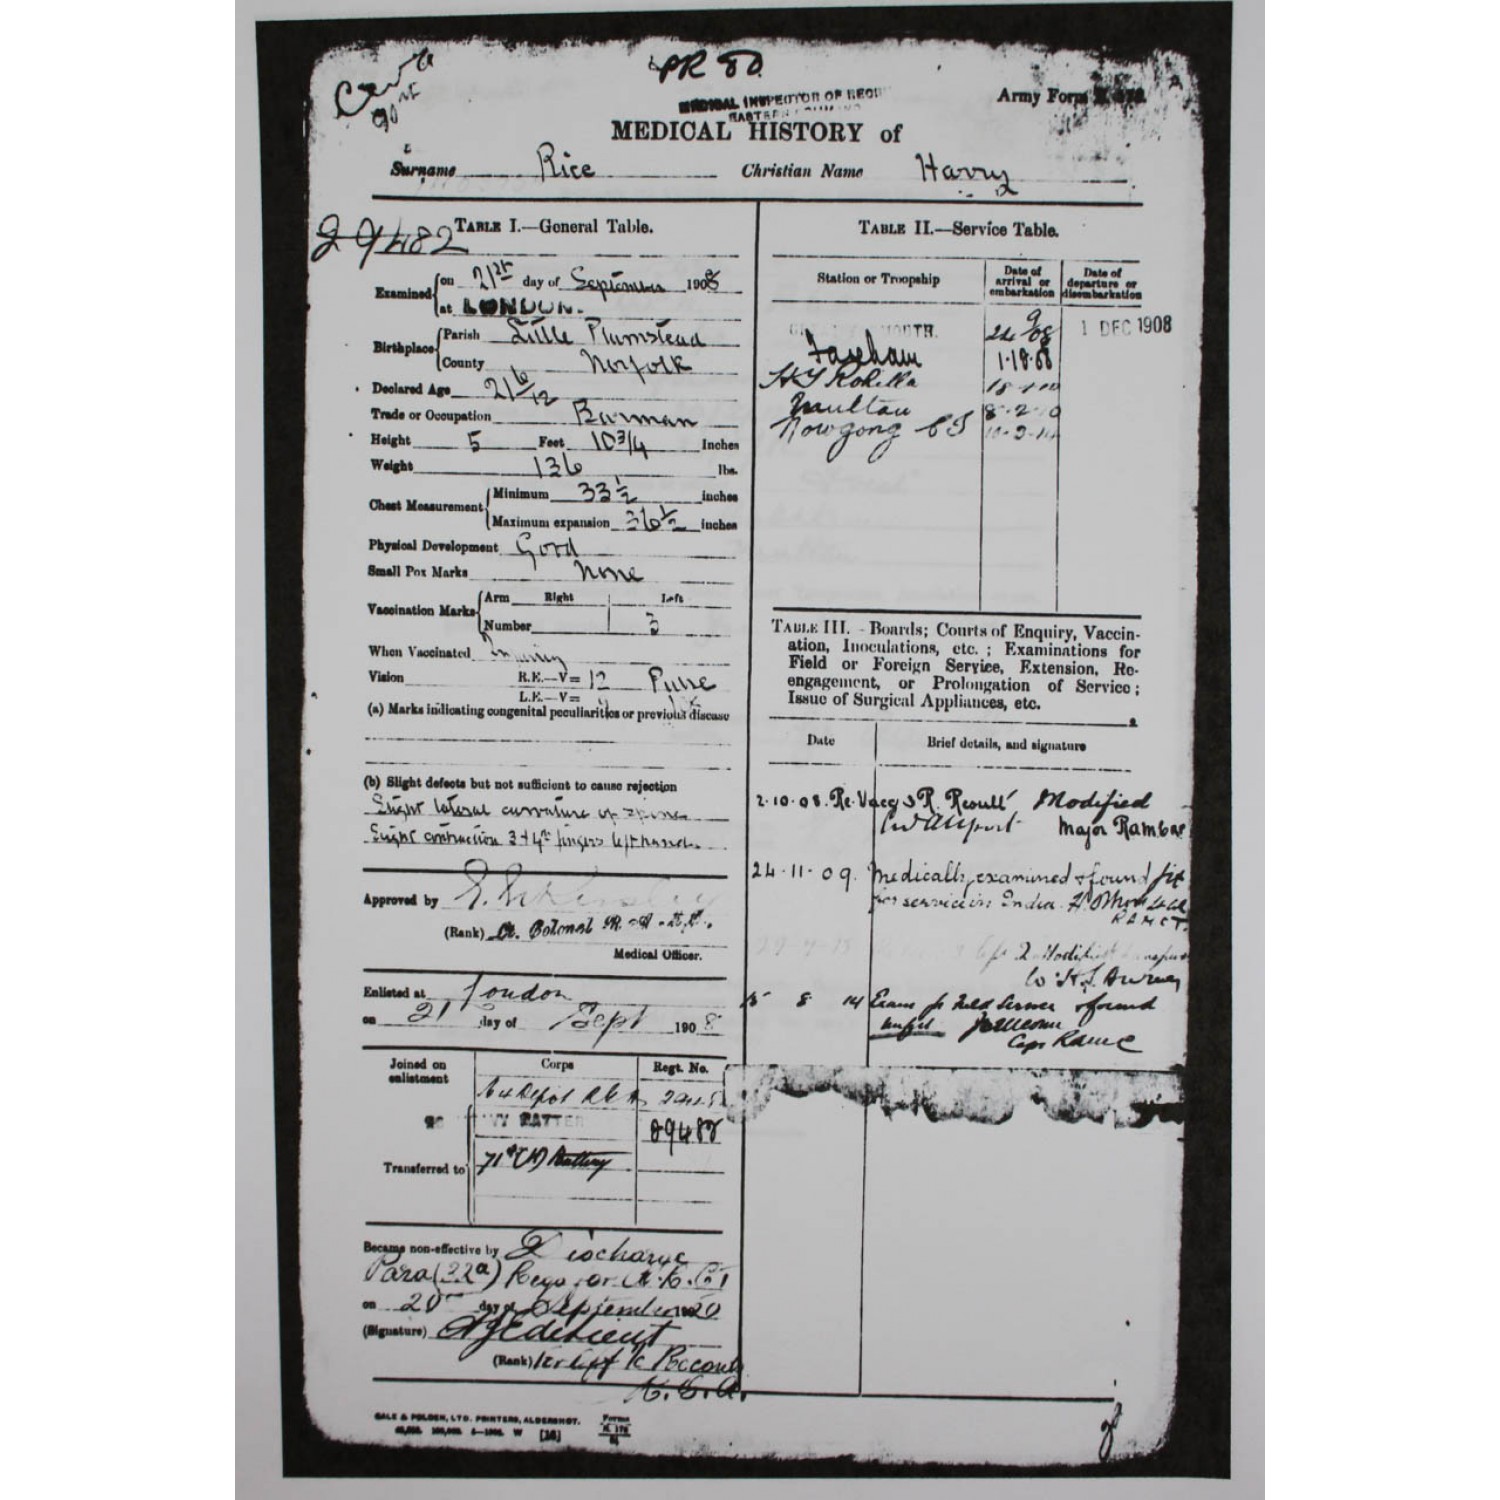 PR 80
MEDICAL INSPECTOR OF
EASTERN
Army Form
MEDICAL HISTORY of
Surname Rice Christian Name Harry
29482
TABLE I.—General Table.
Examined on 21st day of September 1908
at LONDON.
Birthplace Parish Little Plumstead
County Norfolk
Declared Age 21 6/12
Trade or Occupation Barman
Height 5 Feet 10 3/4 Inches
Weight 136 lbs.
Chest Measurement Minimum 33 1/2 inches
Maximum expansion 36 1/2 inches
Physical Development Good
Small Pox Marks None
Vaccination Marks Arm Right Left
Number 3
When Vaccinated Infancy
Vision R.E.—V= 12 Pulse
L.E.—V=
(a) Marks indicating congenital peculiarities or previous disease
(b) Slight defects but not sufficient to cause rejection
Slight lateral curvature of spine
Slight contraction 3 + 4th fingers left hand.
Approved by
(Rank) Lt. Colonel
Medical Officer.
Enlisted at London
on 21 day of Sept 1908
Joined on enlistment Corps Regt. No.
Depot
29482
Transferred to 71st (H) Battery
Became non-effective by Discharge
Para (22a)
on 20 day of September 1920
(Signature)
(Rank) Records
R.G.A.
GALE & POLDEN, LTD. PRINTERS, ALDERSHOT.
Forms
TABLE II.—Service Table.
Station or Troopship
Date of arrival or embarkation
Date of departure or disembarkation
24 9 08 1 DEC 1908
Fareham 1.10.08
Rohilla
Multan 8-2-10
Nowgong
TABLE III. - Boards; Courts of Enquiry, Vaccin-
ation, Inoculations, etc.; Examinations for
Field or Foreign Service, Extension, Re-
engagement, or Prolongation of Service;
Issue of Surgical Appliances, etc.
Date Brief details, and signature
2.10.08. Re. Vacc Result Modified
Major
24.11.09. Medically examined & found fit
for service in India.
Modified
15 8 14 Exam for Field Service & found
unfit
Capt RAMC